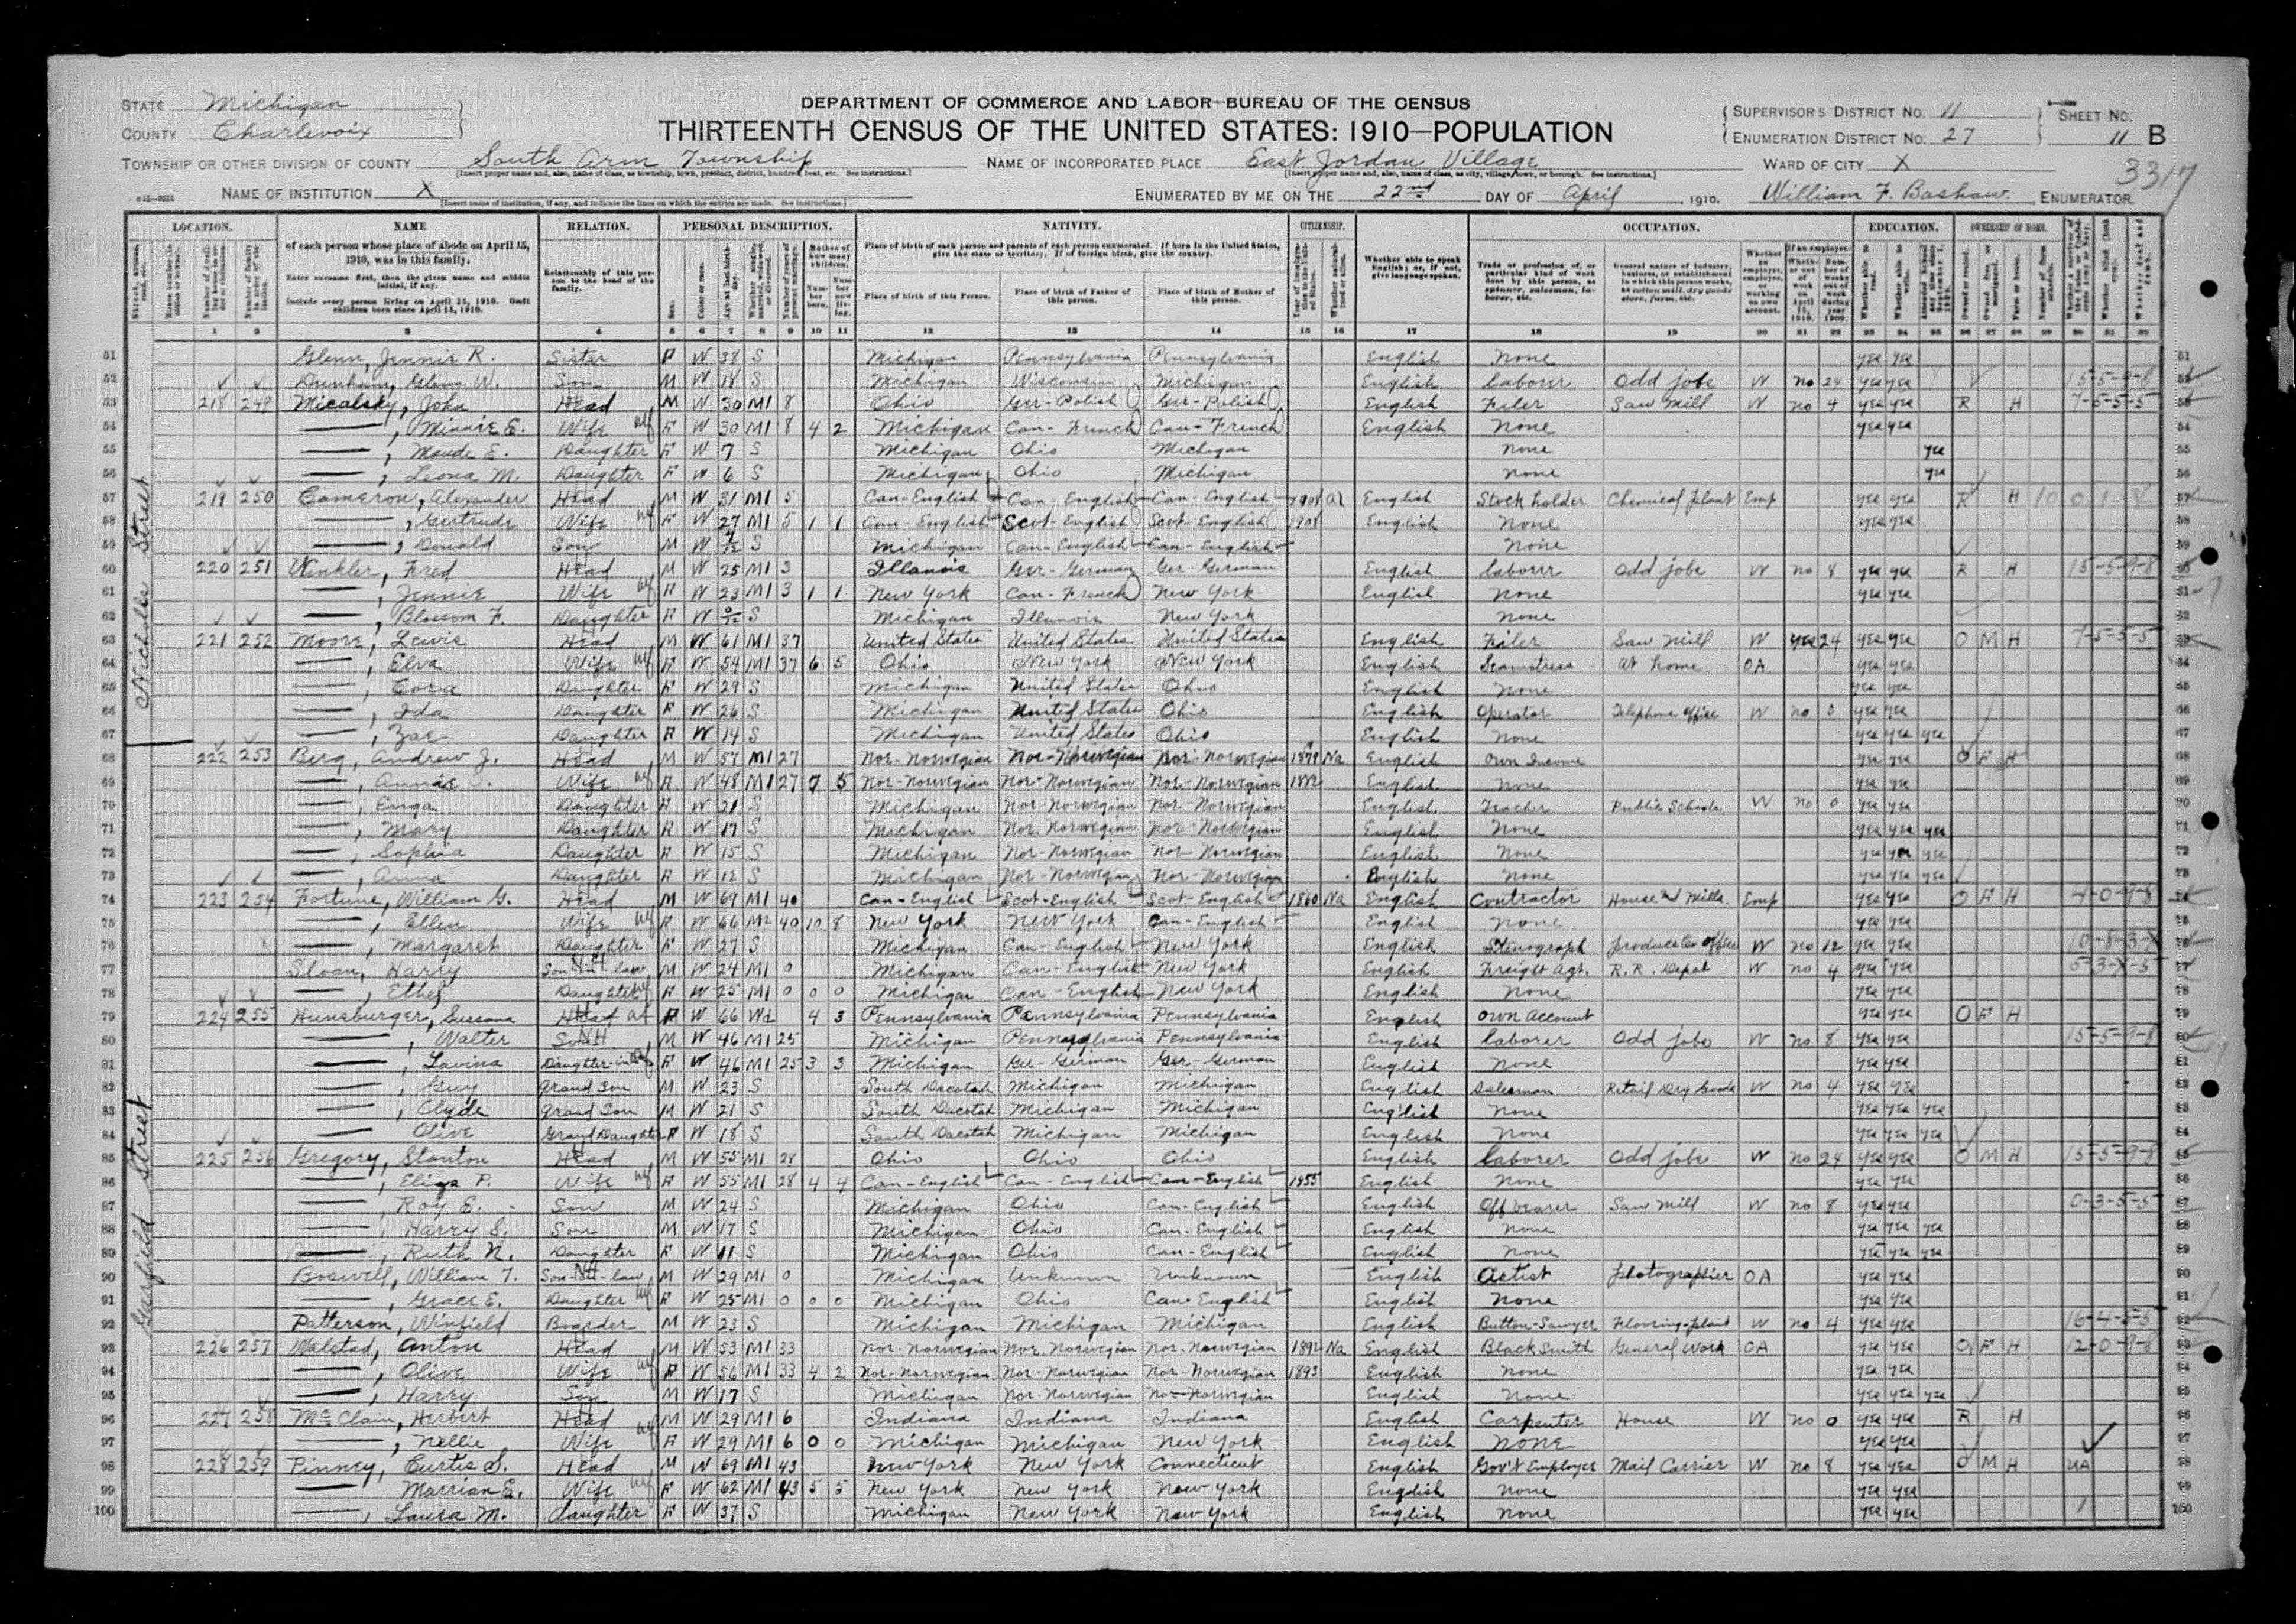 STATE Michigan
COUNTY Charlevoix
DEPARTMENT OF COMMERCE AND LABOR—BUREAU OF THE CENSUS
THIRTEENTH CENSUS OF THE UNITED STATES: 1910—POPULATION
SUPERVISOR'S DISTRICT NO. 11
ENUMERATION DISTRICT NO. 27
SHEET NO. 11 B
3317
TOWNSHIP OR OTHER DIVISION OF COUNTY South Arm Township
NAME OF INCORPORATED PLACE East Jordan Village
WARD OF CITY X
NAME OF INSTITUTION X
ENUMERATED BY ME ON THE 22nd DAY OF April, 1910. William F. Bashaw ENUMERATOR
LOCATION. NAME RELATION. PERSONAL DESCRIPTION. NATIVITY. CITIZENSHIP. OCCUPATION. EDUCATION. OWNERSHIP OF HOME.
of each person whose place of abode on April 15, 1910, was in this family.
Enter surname first, then the given name and middle initial, if any.
Include every person living on April 15, 1910. Omit children born since April 15, 1910.
Relationship of this person to the head of the family.
Place of birth of each person and parents of each person enumerated. If born in the United States, give the state or territory. If of foreign birth, give the country.
Place of birth of this Person. Place of birth of Father of this person. Place of birth of Mother of this person.
Whether able to speak English; or, if not, give language spoken.
Trade or profession of, or particular kind of work done by this person, as spinner, salesman, laborer, etc.
General nature of industry, business, or establishment in which this person works, as cotton mill, dry goods store, farm, etc.
1 2 3 4 5 6 7 8 9 10 11 12 13 14 15 16 17 18 19 20 21 22 23 24 25 26 27 28 29 30 31 32
Nicholls Street
51 Glenn, Jennie R. Sister F W 38 S Michigan Pennsylvania Pennsylvania English None yes yes 51
52 Dunham, Glenn W. Son M W 18 S Michigan Wisconsin Michigan English Laborer Odd jobs W no 24 yes yes 15-5-9-8
53 218 249 Micalsky, John Head M W 30 M1 8 Ohio Ger-Polish Ger-Polish English Filer Saw Mill W no 4 yes yes R H 7-5-5-5
54 —, Minnie E. Wife F W 30 M1 8 4 2 Michigan Can-French Can-French English None yes yes 54
55 —, Maude E. Daughter F W 7 S Michigan Ohio Michigan None yes 55
56 —, Leona M. Daughter F W 6 S Michigan Ohio Michigan None yes 56
57 219 250 Cameron, Alexander Head M W 31 M1 5 Can-English Can-English Can-English 1908 al English Stock holder Chemical plant Emp yes yes R H 10 0 1 4
58 —, Gertrude Wife F W 27 M1 5 1 1 Can-English Scot-English Scot-English 1908 English None yes yes 58
59 —, Donald Son M W S Michigan Can-English Can-English None 59
60 220 251 Winkler, Fred Head M W 25 M1 3 Illanois Ger-German Ger-German English Laborer Odd jobs W no 8 yes yes R H 15-5-9-8
61 —, Jennie Wife F W 23 M1 3 1 1 New York Can-French New York English None yes yes
62 —, Blossom F. Daughter F W 0/12 S Michigan Illinois New York None
63 221 252 Moore, Lewis Head M W 61 M1 37 United States United States United States English Filer Saw Mill W yes 24 yes yes O M H 7-5-5-5
64 —, Elva Wife F W 54 M1 37 6 5 Ohio New York New York English Seamstress at home OA yes yes 64
65 —, Cora Daughter F W 29 S Michigan United States Ohio English None yes yes 65
66 —, Ida Daughter F W 26 S Michigan United States Ohio English Operator Telephone Office W no 0 yes yes 66
67 —, Zae Daughter F W 14 S Michigan United States Ohio English None yes yes yes 67
Garfield Street
68 222 253 Berg, Andrew J. Head M W 57 M1 27 Nor-Norwegian Nor-Norwegian Nor-Norwegian 1879 Na English Own Income yes yes O F H 68
69 —, Annie Wife F W 48 M1 27 7 5 Nor-Norwegian Nor-Norwegian Nor-Norwegian English None yes yes 69
70 —, Enga Daughter F W 21 S Michigan Nor-Norwegian Nor-Norwegian English Teacher Public Schools W no 0 yes yes 70
71 —, Mary Daughter F W 17 S Michigan Nor. Norwegian Nor-Norwegian English None yes yes yes 71
72 —, Sophia Daughter F W 15 S Michigan Nor-Norwegian Nor-Norwegian English None yes yes yes 72
73 —, Anna Daughter F W 12 S Michigan Nor-Norwegian Nor-Norwegian English None yes yes yes 73
74 223 254 Fortune, William G. Head M W 69 M1 40 Can-English Scot-English Scot-English 1860 Na English Contractor House & Mills Emp yes yes O F H 4-0-9-8
75 —, Ellen Wife F W 66 M2 40 10 8 New York New York Can-English English None yes yes 75
76 —, Margaret Daughter F W 27 S Michigan Can-English New York English Stenograph office W no 12 yes yes 10-8-3-X
77 Sloan, Harry Son in law M W 24 M1 0 Michigan Can-English New York English Freight Agt. R.R. Depot W no 4 yes yes 5-3-X-5
78 —, Ethel Daughter F W 25 M1 0 0 0 Michigan Can-English New York English None yes yes 78
79 224 255 Hunsburger, Sussana Head F W 66 Wd 4 3 Pennsylvania Pennsylvania Pennsylvania English Own account yes yes O F H 79
80 —, Walter Son M W 46 M1 25 Michigan Pennsylvania Pennsylvania English Laborer Odd jobs W no 8 yes yes 15-5-9-8
81 —, Lavina Daughter-in F W 46 M1 25 3 3 Michigan Ger-German Ger-German English None yes yes 81
82 —, Guy Grand Son M W 23 S South Dacotah Michigan Michigan English Salesman Retail Dry Goods W no 4 yes yes 82
83 —, Clyde Grand Son M W 21 S South Dacotah Michigan Michigan English None yes yes yes 83
84 — Olive Grand Daughter F W 18 S South Dacotah Michigan Michigan English None yes yes yes 84
85 225 256 Gregory, Stanton Head M W 55 M1 28 Ohio Ohio Ohio English Laborer Odd jobs W no 24 yes yes O M H 15-5-9-8
86 —, Eliza P. Wife F W 55 M1 28 4 4 Can-English Can-English Can-English 1855 English None yes yes 86
87 —, Roy E. Son M W 24 S Michigan Ohio Can-English English Off bearer Saw Mill W no 8 yes yes 0-3-5-5
88 —, Harry S. Son M W 17 S Michigan Ohio Can-English English None yes yes yes 88
89 —, Ruth N. Daughter F W 11 S Michigan Ohio Can-English English None yes yes yes 89
90 Boswell, William T. Son-in-law M W 29 M1 0 Michigan Unknown Unknown English Artist photographer OA yes yes 90
91 —, Grace E. Daughter F W 25 M1 0 0 0 Michigan Ohio Can-English English None yes yes 91
92 Patterson, Winfield Boarder M W 23 S Michigan Michigan Michigan English Button-Sawyer Flooring-plant W no 4 yes yes 16-4-5-5
93 226 257 Walstad, Anton Head M W 53 M1 33 Nor-Norwegian Nor. Norwegian Nor. Norwegian 1892 Na English Black Smith General Work OA yes yes O F H 12-0-9-8
94 —, Olive Wife F W 56 M1 33 4 2 Nor-Norwegian Nor-Norwegian Nor-Norwegian 1893 English None yes yes 94
95 —, Harry Son M W 17 S Michigan Nor-Norwegian Nor-Norwegian English None yes yes yes 95
96 227 258 McClain, Herbert Head M W 29 M1 6 Indiana Indiana Indiana English Carpenter House W no 0 yes yes R H 96
97 —, Nellie Wife F W 29 M1 6 0 0 Michigan Michigan New York English None yes yes 97
98 228 259 Pinney, Curtis S. Head M W 69 M1 43 New York New York Connecticut English Gov't Employee Mail Carrier W no 8 yes yes O M H UA 98
99 — Marrian E. Wife F W 62 M1 43 5 5 New York New York New York English None yes yes 99
100 —, Laura M. daughter F W 37 S Michigan New York New York English None yes yes 100